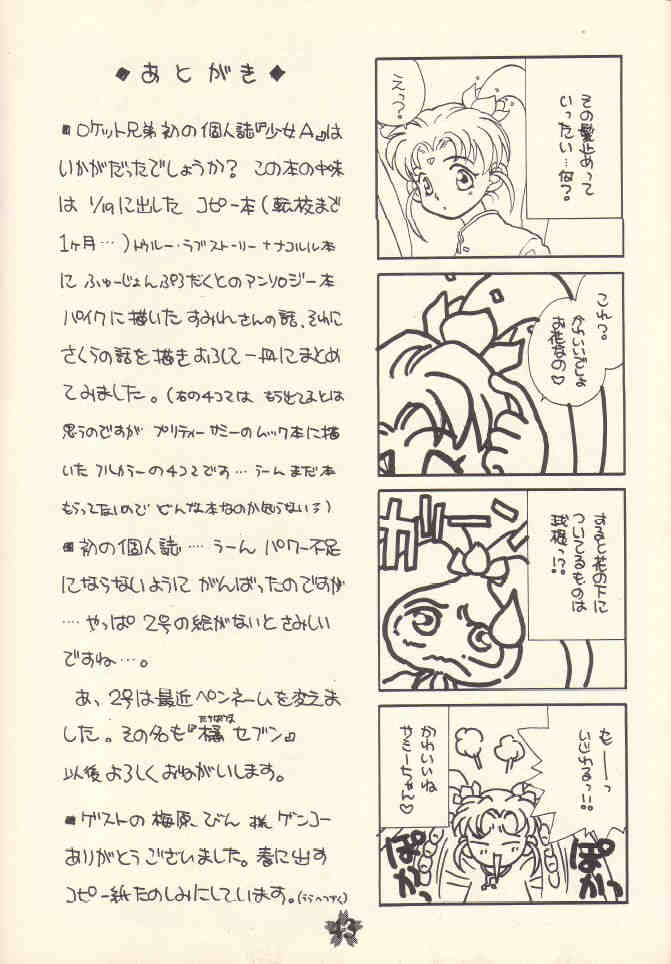 ◆あとがき◆
■ロケット兄弟初の個人誌『少女A』は
いかがだったでしょうか? この本の中味
は 1/19に出した コピー本(転校まで
1ヶ月…)トゥルー・ラブストーリー+ナコルル本
に ふゅーじょんぷろだくとのアンソロジー本
パイクに描いたすみれさんの話、それに
さくらの話を描きおろして一冊にまとめ
てみました。(右の4コマは もう出てるとは
思うのですが プリティーサミーのムック本に描
いた フルカラーの4コマです…うーん まだ本
もらってないので どんな本なのか知らない3)
■初の個人誌…うーん パワー不足
にならないように がんばったのですが
…やっぱ 2号の絵がないと さみしい
ですね…。
あ、2号は最近ペンネームを変えま
した。その名も『橘 セブン』
たちばな
以後 よろしくおねがいします。
■ゲストの 梅原、びん 様 ゲンコー
ありがとうございました。春に出す
コピー紙たのしみにしています。(うらへつづく)
その髪止めって
いったい…何?。
えっ?。
これ?。
かわいいでしょ
お花なの♡
すると花の下に
ついてるものは
球根っ!?
ガーン
もーーっ
いじわるっ!!
かわいいね
サミーちゃん♡
ぽかっ
ぽかっ
43